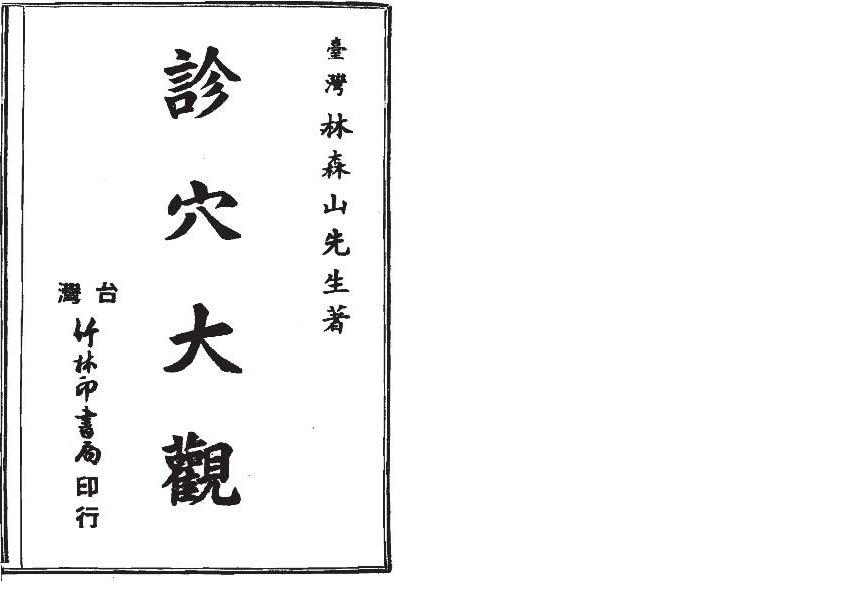 臺灣林森山先生著
診穴大觀
台灣
竹林印書局印行